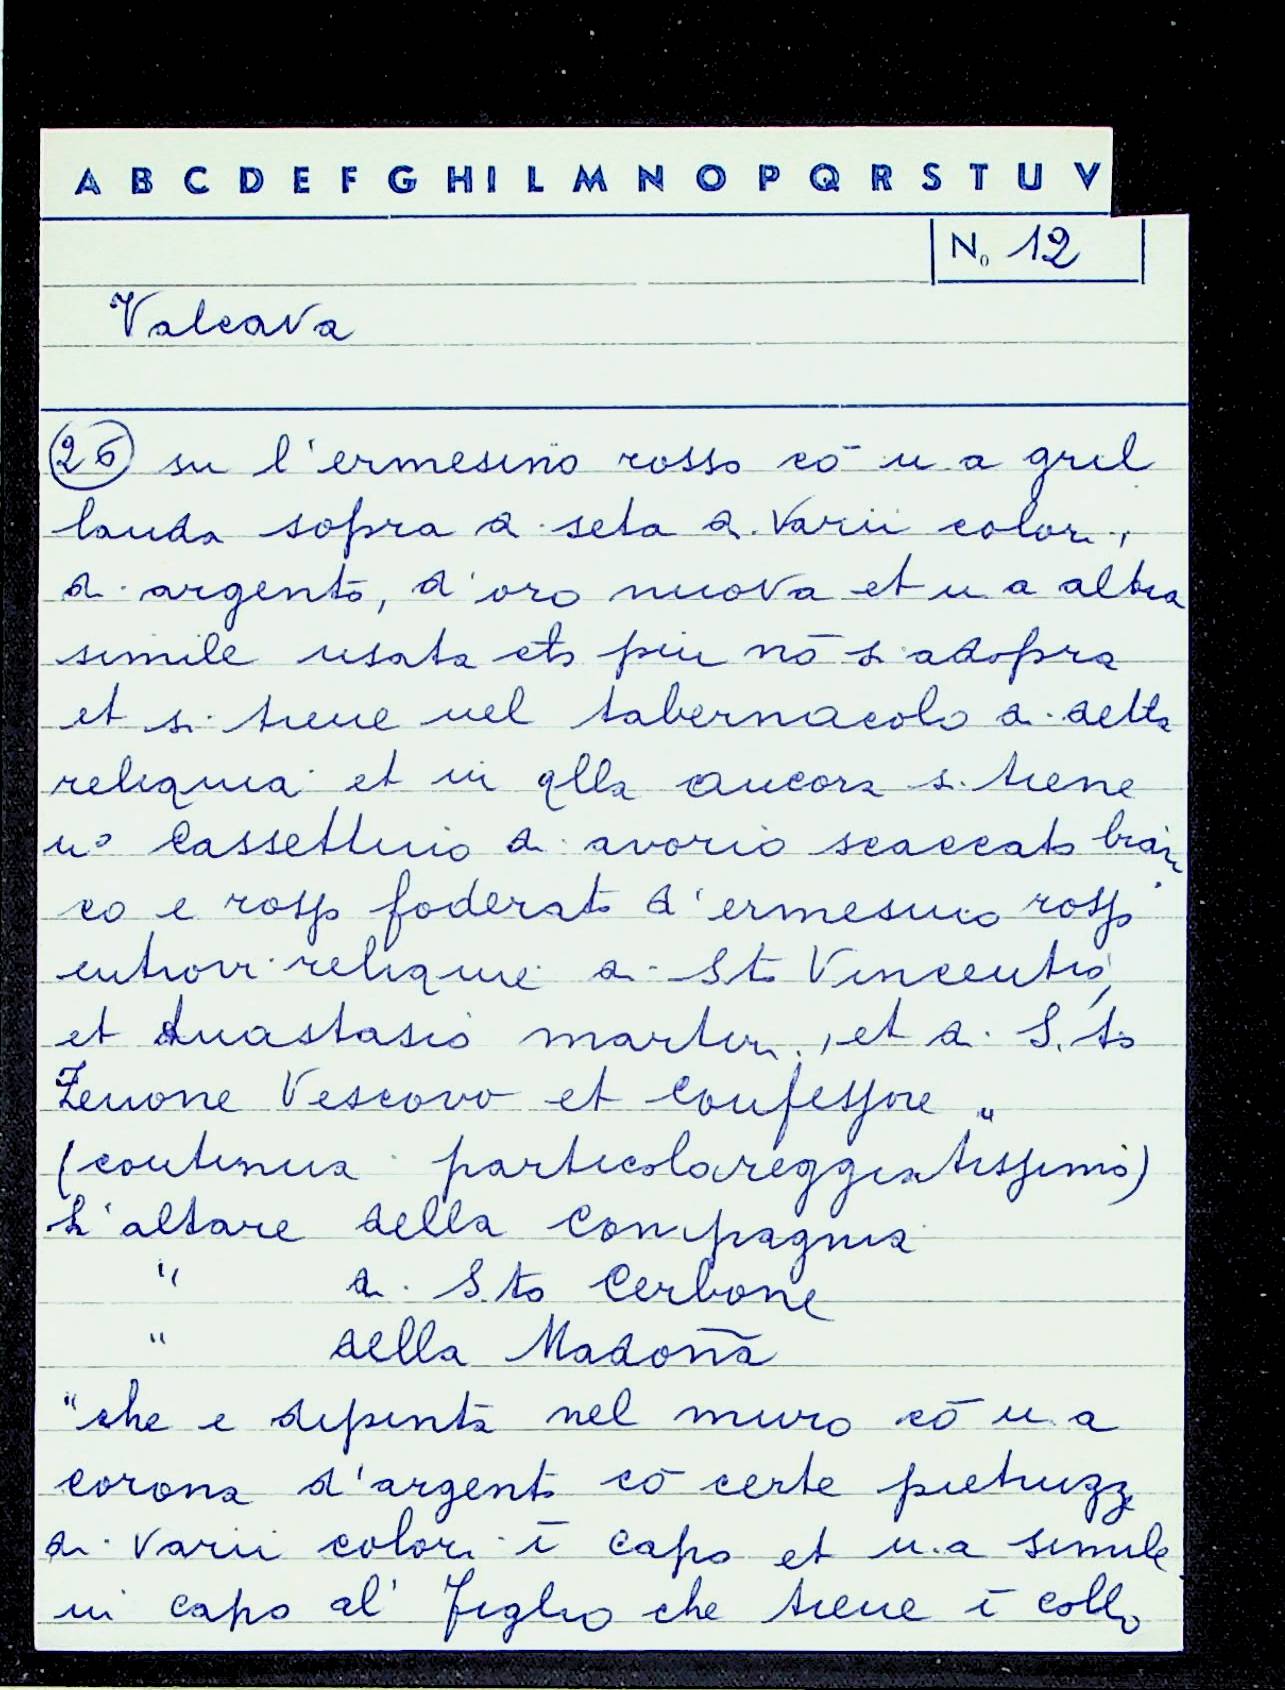 A B C D E F G H I L M N O P Q R S T U V
N. 12
Valcava
26 su l'ermesino rosso cō u a gril
landa sopra di seta di varii colori,
di argento, d'oro nuova et u a altra
simile usata et più nō si adopra
et si tiene nel tabernacolo di detta
reliquia et in qlla ancora si tiene
uº Cassettino di avorio scaccato bian
co e rosso foderato d'ermesino rosso
entrovi reliquie di Sto Vincentio,
et Anastasio martiri, et di S.to
Zenone Vescovo et Confessore "
(continua particolareggiatissimo)
L'altare della Compagnia
" di S.to Cerbone
" della Madoña
"che e dipinta nel muro cō u.a
corona d'argento cō certe pietruzze
di varii colori ī capo et u.a simile
in capo al' Figlio che tiene ī collo